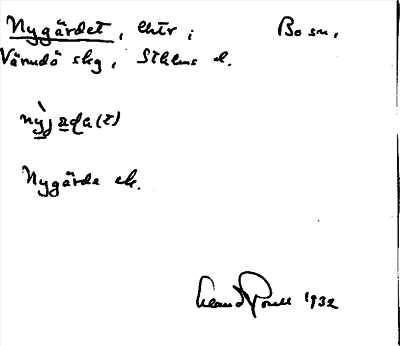 Nygärdet, lhtr; Bo sn,
Värmdö skg, Sthlms l.
nỳjäda(t)
Nygärde ek.
1932